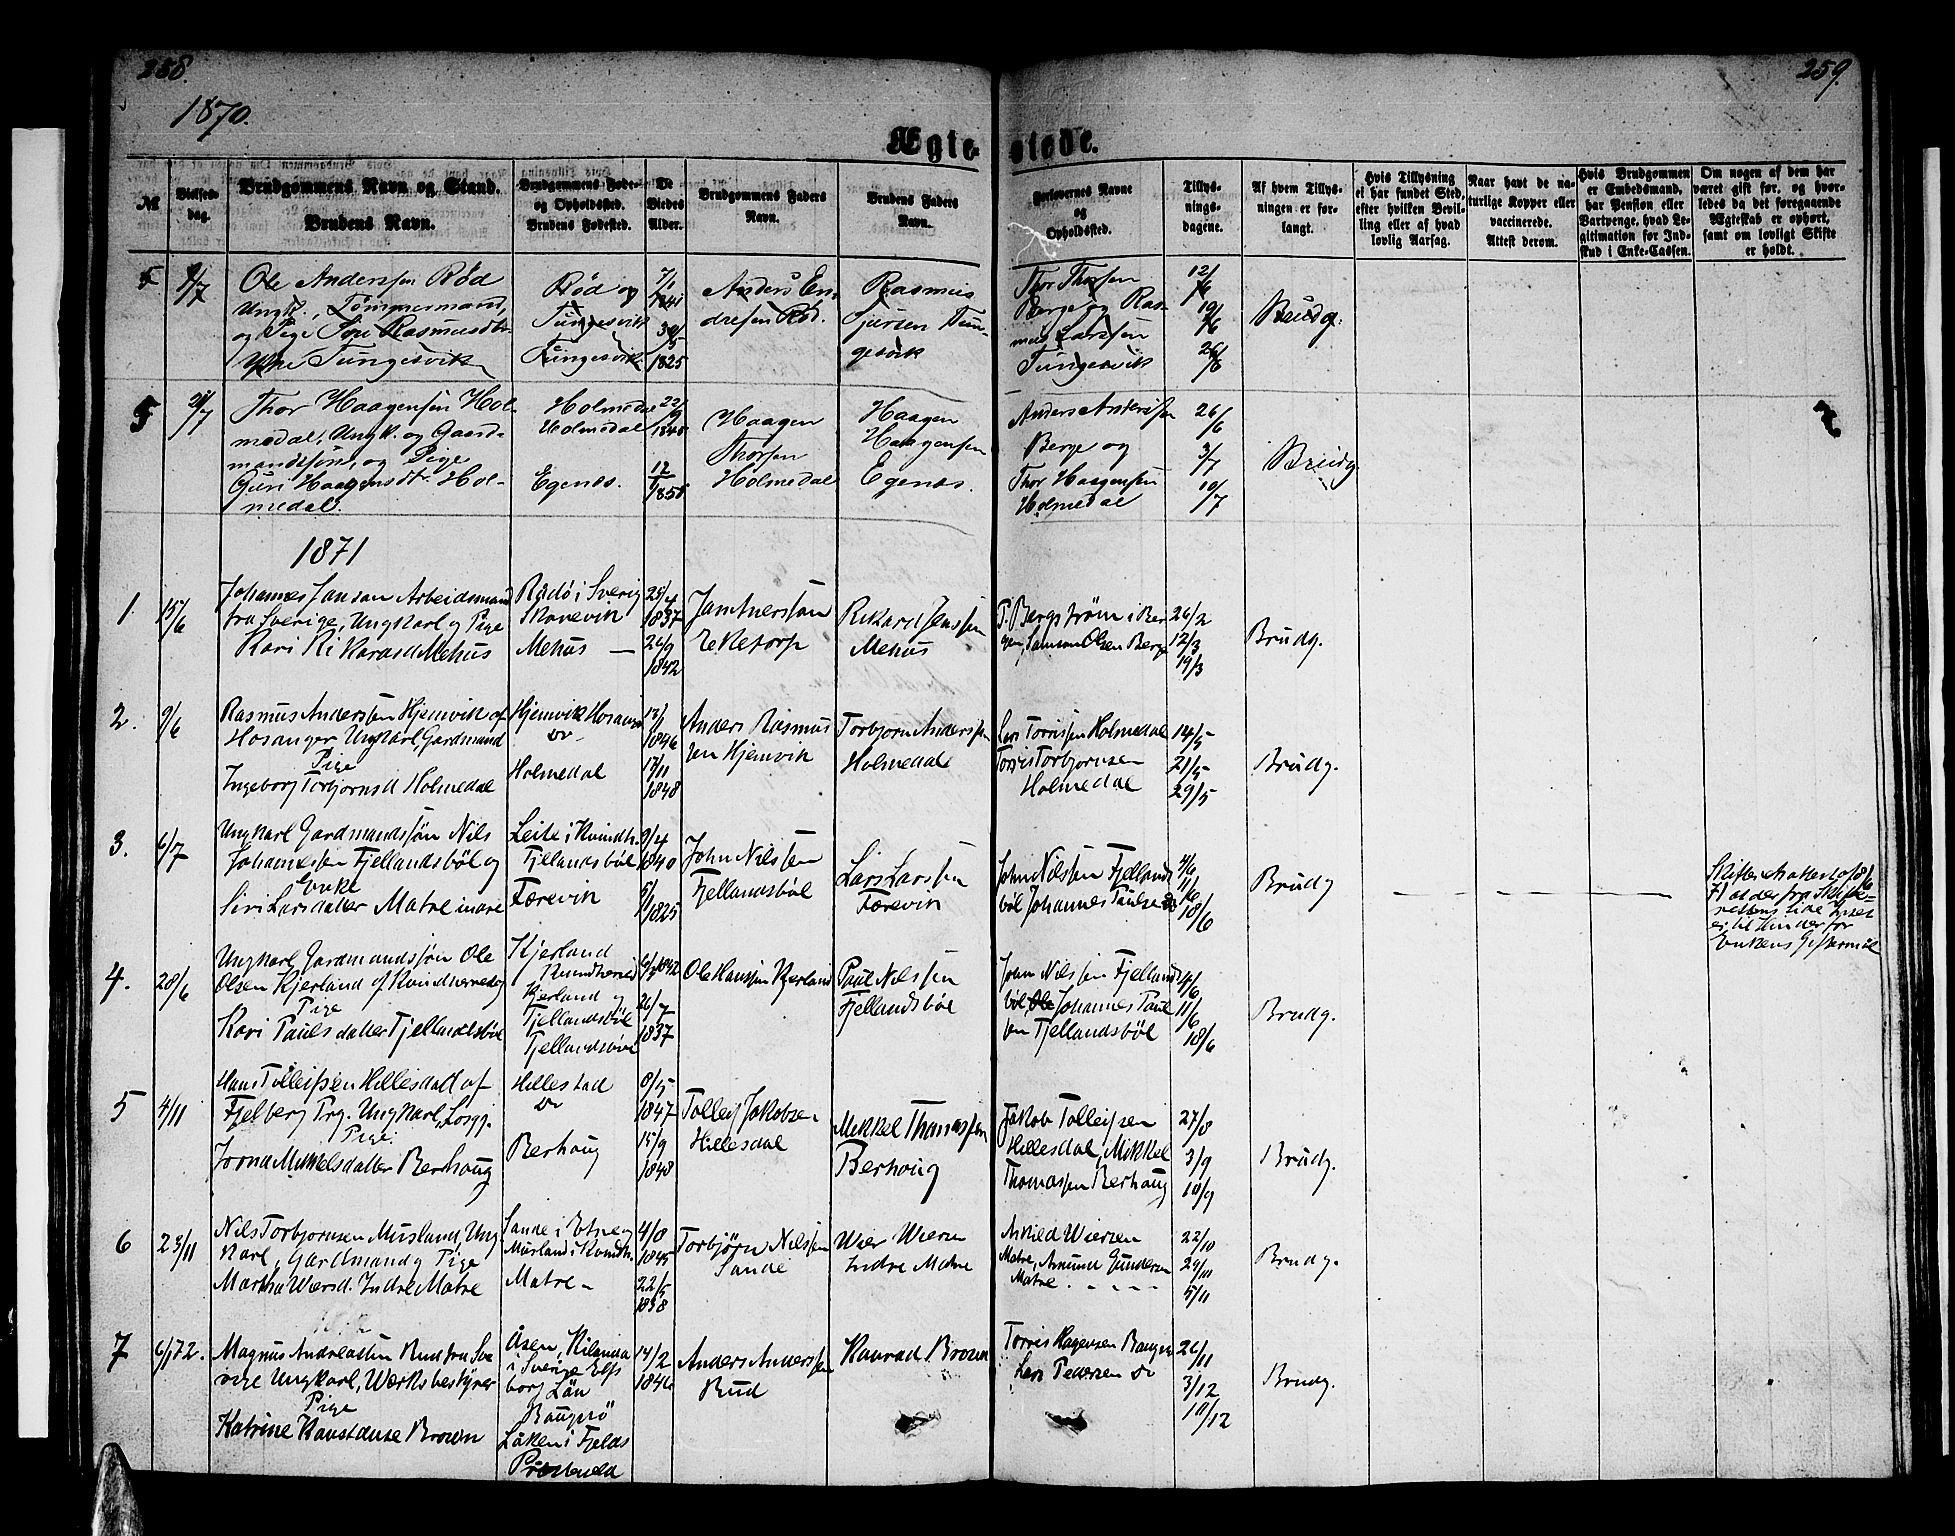 258.
259.
1870.
Ægte-
stede.
№
Vielses-
dag.
Brudgommens Navn og Stand.
Brudens Navn.
Brudgommens Føde-
og Opholdssted.
Brudens Fødested.
De
Viedes
Alder.
Brudgommens Faders
Navn.
Brudens Faders
Navn.
Forlovernes Navne
og
Opholdssted.
Tillys-
nings-
dagene.
Af hvem Tillys-
ningen er for-
langt.
Hvis Tillysning
ei har fundet Sted,
efter hvilken Bevil-
ling eller af hvad
lovlig Aarsag.
Naar havt de na-
turlige Kopper eller
vaccinerede.
Attest derom.
Hvis Brudgommen
er Embedsmand,
har Pension eller
Vartpenge, hvad Le-
gitimation for Ind-
skud i Enke-Cassen.
Om nogen af dem har
været gift før, og hvor-
ledes da det foregaaende
Ægteskab er ophørt,
samt om lovligt Skifte
er holdt.
Ole Anderssen Rød
Ungk., Tømmermand,
og Pige Siri Rasmusdtr.
Tungesvik
Rød og
Tungesvik
Tungesvik
1825
Anders En-
dresen Rød.
Rasmus
Sjursen Tun-
gesvik
Thor Thorsen
Berge og Ras-
mus Larssen
Tungesvik
12/6
19/6
26/6
Brudg.
5
Thor Haagensen Hol-
medal, Ungk. og Gaard-
mandssøn, og Pige
Guri Haagensdtr. Hol-
medal.
Holmedal
Holmedal
Egenæs.
Haagen
Thorsen
Holmedal
Haagen
Haagensen
Egenæs.
Anders Anderssen
Berge og
Thor Haagensen
Holmedal
26/6
3/7
10/7
Brudg.
1871
1
15/6
Johannes Jansan Arbeidsmand
fra Sverige, Ungkarl og Pige
Kari Rikarasd Mehus
Rådö i Sverig
Skonevik
Mehus —
1837
26/9
1842
Eketorp
Rikard Jenssen
Mehus
P. Bergström i Ber
gen, Samson Olsen Berge
26/2
12/3
19/3
Brudg.
2.
9/6
Rasmus Anderssen Hjemvik af
Hosanger Ungkarl, Gardmand
Pige
Ingeborg Torbjørnsd Holmedal
Hjemvik Hosanger
Holmedal
1846
17/11
1848
Anders Rasmus
sen Hjemvik
Torbjørn Anderssen
Holmedal
Lars Torrissen Holmedal
Torris Torbjørnsen
Holmedal
14/5
21/5
29/5
Brudg.
3.
6/7
Ungkarl Gardmandssøn Nils
Johannessen Fjellandsbøl og
Enke
Siri Larsdatter Matre indre
Leite i Kvindh.
Fjellandsbøl
Færevik
9/4
1840
1825
John Nilssen
Fjellandsbøl
Lars Larssen
Færevik
John Nilssen Fjellands
bøl Johannes Paulsen
4/6
11/6
18/6
Brudg
Enkens Giftermål
4.
28/6
Ungkarl Gardmandssøn Ole
Olsen Kjerland af Kvindherred og
Pige
Kari Paulsdatter Fjellandsbøl
Kjerland
Kvindherred
Kjerland og
Fjellandsbøl
Fjellandsbøl
1842
26/7
1837
Ole Hanssen Kjerland
Paul Nilssen
Fjellandsbøl
John Nilssen Fjellands
bøl, Ole Johannes Paul
sen Fjellandsbøl
4/6
11/6
18/6
Brudg.
5
4/11
Hans Tolleifsen Hillesdal af
Fjelberg Prg. Ungkarl, Losgj.
Pige
Jorna Mikkelsdatter Berhaug
Hillestad
Berhaug
8/5
1847
15/9
1848
Tolleif Jakobsen
Hillesdal
Mikkel Thomassen
Berhaug
Jakob Tolleifsen
Hillesdal, Mikkel
Thomassen Berhaug
27/8
3/9
10/9
Brudg.
6
23/11
Nils Torbjørnsen Musland, Ung
karl, Gardmand og Pige
Martha Wiersd. Indre Matre
Sande i Etne og
Musland i Kvindh.
Matre —
4/8
1845
22/5
1838
Torbjørn Nilssen
Sande
Wier Wiersen
Indre Matre
Askild Wiersen
Matre, Amund Gundersen
Matre
22/10
29/10
5/11
Brudg.
7
6/1 72.
Magnus Andreassen Rud fra Sve
rige Ungkarl, Værksbestyrer
Pige
Katrine Konstanse Brown
Åsen, Kilanda
i Sverige Elfs
borg Län
Baugsø
Låken i Fjelds
Præstegeld
14/2
1846
Anders Anderssen
Rud
Konrad Brown
Torris Hagensen Baugsø
Lars Pedersen do
26/11
3/12
10/12
Brudg.